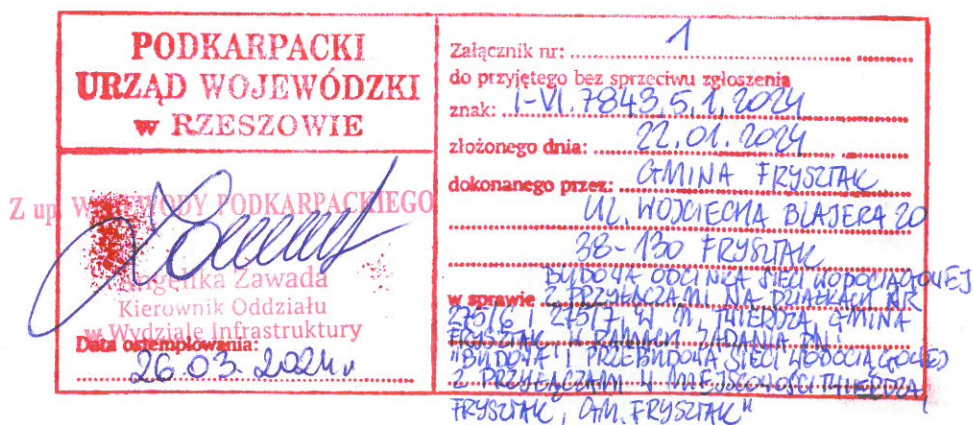 PODKARPACKI
URZĄD WOJEWÓDZKI
w RZESZOWIE
Z up. WOJEWODY PODKARPACKIEGO
Angelika Zawada
Kierownik Oddziału
w Wydziale Infrastruktury
Data ostemplowania:
26.03.2024r
Załącznik nr: 1
do przyjętego bez sprzeciwu zgłoszenia
znak: I-VI.7843.5.1.2024
złożonego dnia: 22.01.2024
dokonanego przez: GMINA FRYSZTAK
UL. WOJCIECHA BLAJERA 20
38-130 FRYSZTAK
BUDOWA ODCINKA SIECI WODOCIĄGOWEJ
w sprawie Z PRZYŁĄCZAMI NA DZIAŁKACH NR
275/6 I 275/7, W M. TWIERDZA, GMINA
FRYSZTAK W RAMACH ZADANIA PN.
"BUDOWA I PRZEBUDOWA SIECI WODOCIĄGOWEJ
Z PRZYŁĄCZAMI W MIEJSCOWOŚCI TWIERDZA,
FRYSZTAK, GM. FRYSZTAK"